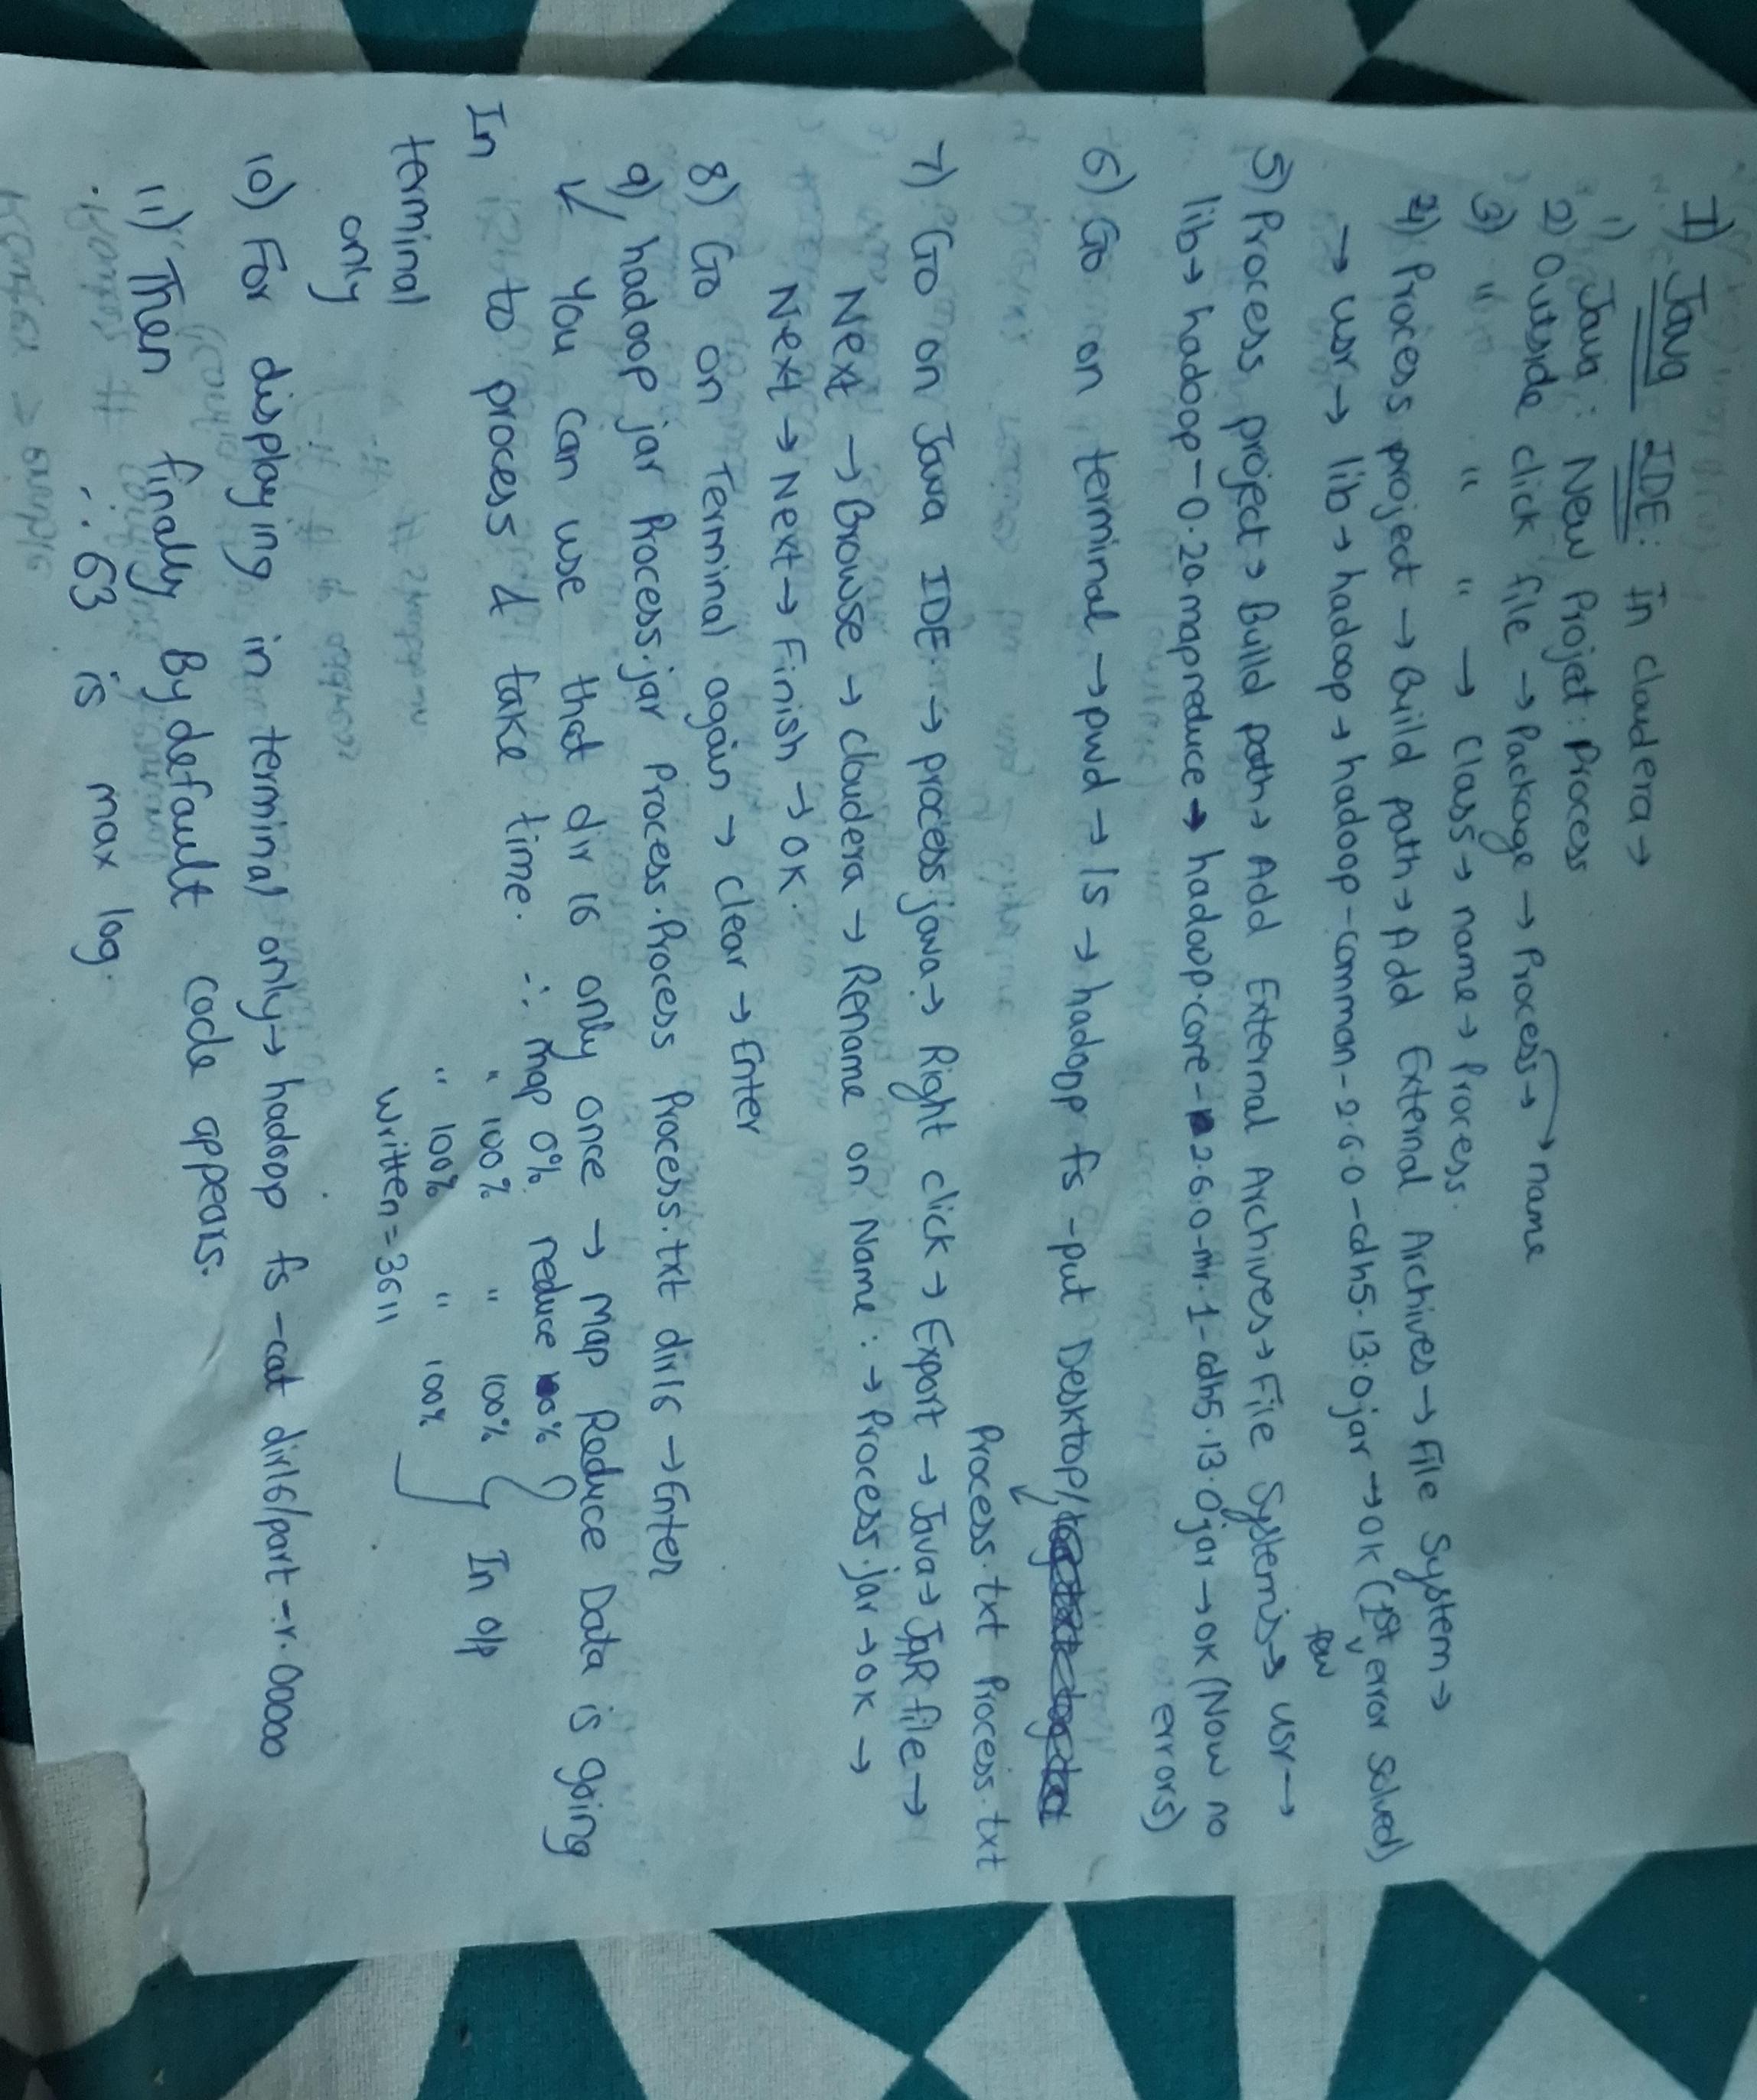 I) Java IDE: In cloudera →
1) Java : New Projet : Process
2) Outside click file → Package → Process → name
3) " " " → Class → name → Process.
4) Process project → Build path → Add External Archives → File System →
→ usr → lib → hadoop → hadoop-common-2.6.0-cdh5.13.0jar → OK (1st error solved)
few
5) Process project → Build path → Add External Archives → File Systems → usr →
lib → hadoop-0.20.mapreduce → hadoop.core-2.6.0-mr.1-cdh5.13.0jar → OK (Now no
errors)
6) Go on terminal → pwd → ls → hadoop fs -put Desktop/
Process.txt Process.txt
7) Go on Java IDE. → process.java → Right click → Export → Java → JAR file →
Next → Browse → cloudera → Rename on Name : → Process.jar → OK →
Next → Next → Finish → OK.
8) Go on Terminal again → clear → Enter
9) hadoop jar Process.jar Process.Process Process.txt dir16 → Enter
You can use that dir 16 only once → Map Reduce Data is going
to process & take time. ∴ map 0% reduce 0%
" 100% " 100% In o/p
" 100% " 100%
Written = 3611
In
terminal
only
10) For displaying in terminal only → hadoop fs -cat dir16/part -r. 00000
11) Then finally By default code appears.
∴ 63 is max log.